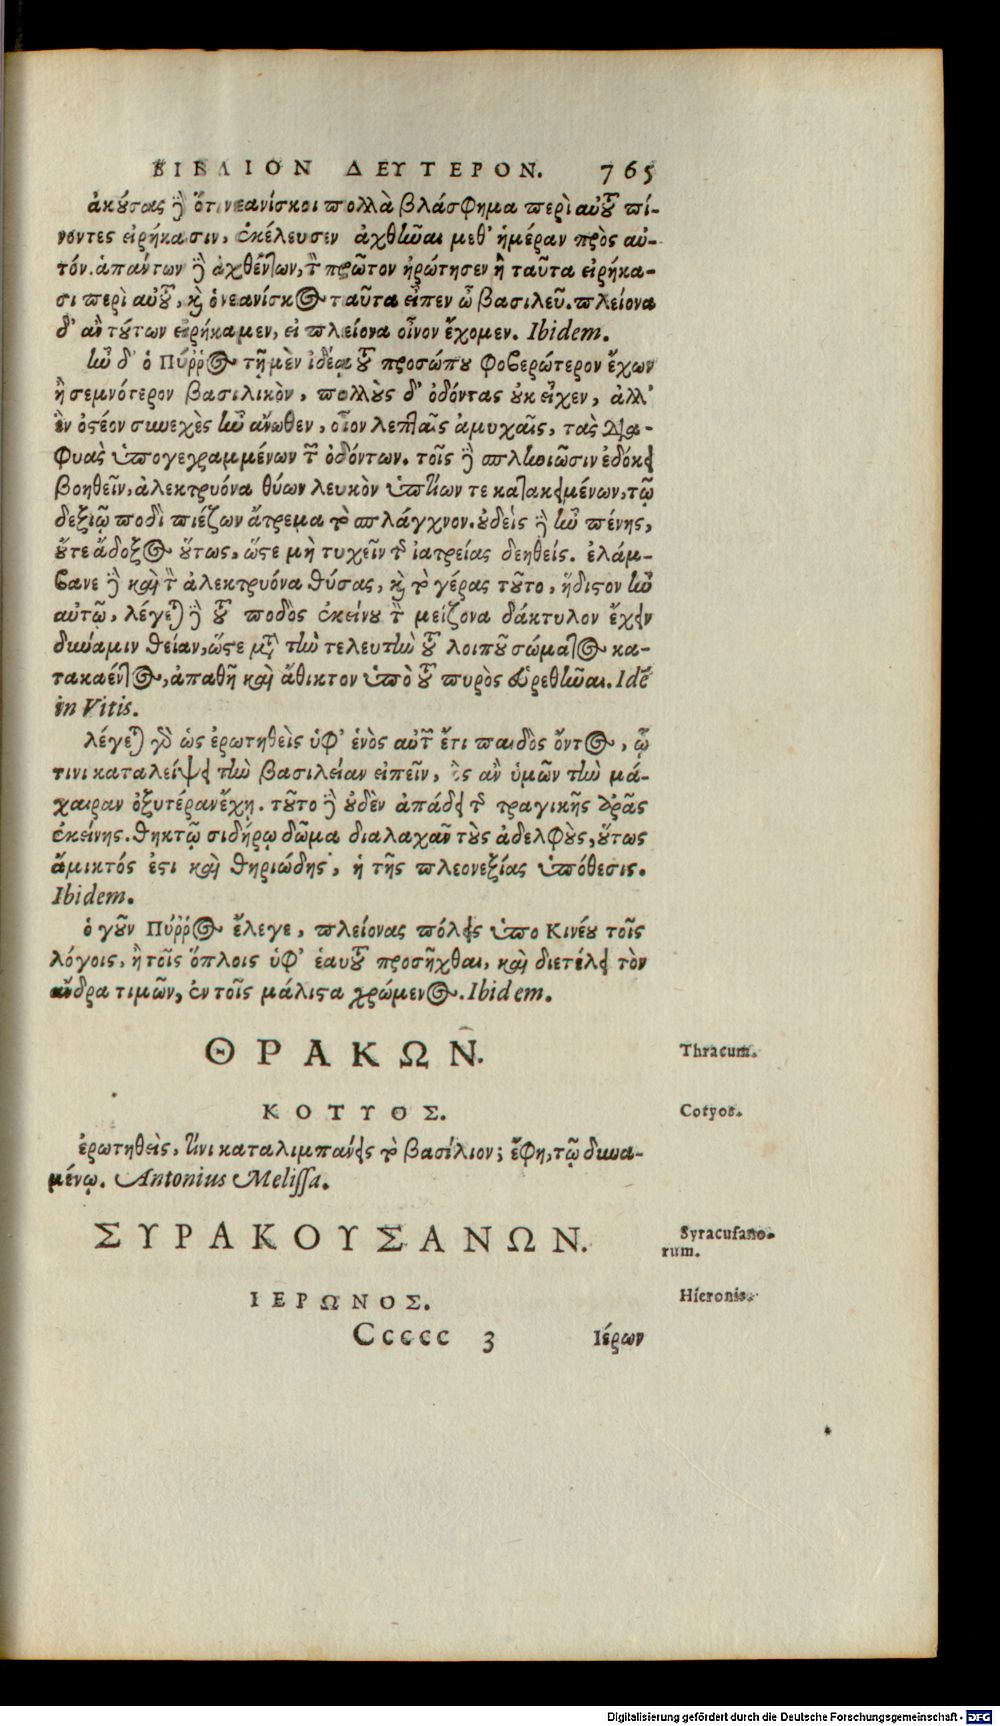 ΒΙΒΛΙΟΝ ΔΕΥΤΕΡΟΝ. 765
ἀκούσας δὲ ὅτι νεανίσκοι πολλὰ βλάσφημα περὶ αὐτοῦ πί-
νοντες εἰρήκασιν, ἐκέλευσεν ἀχθῆναι μεθ' ἡμέραν πρὸς αὐ-
τόν. ἁπάντων δὲ ἀχθέντων, τὸν πρῶτον ἠρώτησεν ἢ ταῦτα εἰρήκα-
σι περὶ αὐτοῦ, καὶ ὁ νεανίσκος ταῦτα εἶπεν ὦ βασιλεῦ. πλείονα
δ' ἂν τούτων εἰρήκαμεν, εἰ πλείονα οἶνον ἔχομεν. Ibidem.
ἦν δ' ὁ Πύῤῥος τῇ μὲν ἰδέᾳ τοῦ προσώπου φοβερώτερον ἔχων
ἢ σεμνότερον βασιλικὸν, πολλοὺς δ' ὀδόντας οὐκ εἶχεν, ἀλλ'
ἓν ὀστέον συνεχὲς ἦν ἄνωθεν, οἷον λεπταῖς ἀμυχαῖς, τὰς δια-
φυὰς ὑπογεγραμμένων τῶν ὀδόντων. τοῖς δὲ σπληνιῶσιν ἐδόκει
βοηθεῖν, ἀλεκτρυόνα θύων λευκὸν ὑπτίων τε κατακειμένων, τῷ
δεξιῷ ποδὶ πιέζων ἄτρεμα τὸ σπλάγχνον. οὐδεὶς δὲ ἦν πένης,
οὔτε ἄδοξος οὕτως, ὥστε μὴ τυχεῖν τῆς ἰατρείας δεηθείς. ἐλάμ-
βανε δὲ καὶ τὸν ἀλεκτρυόνα θύσας, καὶ τὸ γέρας τοῦτο, ἥδιστον ἦν
αὐτῷ, λέγεται δὲ τοῦ ποδὸς ἐκείνου τὸν μείζονα δάκτυλον ἔχειν
δύναμιν θείαν, ὥστε μετὰ τὴν τελευτὴν τοῦ λοιποῦ σώματος κα-
τακαέντος, ἀπαθῆ καὶ ἄθικτον ὑπὸ τοῦ πυρὸς εὑρεθῆναι. Idē
in Vitis.
λέγεται γὰρ ὡς ἐρωτηθεὶς ὑφ' ἑνὸς αὐτῶν ἔτι παιδὸς ὄντος, ᾧ
τινι καταλείψει τὴν βασιλείαν εἰπεῖν, ὃς ἂν ὑμῶν τὴν μά-
χαιραν ὀξυτέραν ἔχῃ. τοῦτο δὲ οὐδὲν ἀπάδει τῆς τραγικῆς ἀρᾶς
ἐκείνης. θηκτῷ σιδήρῳ δῶμα διαλαχεῖν τοὺς ἀδελφοὺς, οὕτως
ἄμικτός ἐστι καὶ θηριώδης, ἡ τῆς πλεονεξίας ὑπόθεσις.
Ibidem.
ὁ γοῦν Πύῤῥος ἔλεγε, πλείονας πόλεις ὑπο Κινέου τοῖς
λόγοις, ἢ τοῖς ὅπλοις ὑφ' ἑαυτοῦ προσῆχθαι, καὶ διετέλει τὸν
ἄνδρα τιμῶν, ἐν τοῖς μάλιστα χρώμενος. Ibidem.
ΘΡΑΚΩΝ. Thracum.
ΚΟΤΥΟΣ. Cotyos.
ἐρωτηθεὶς, τίνι καταλιμπάνεις τὸ βασίλιον; ἔφη, τῷ δυνα-
μένῳ. Antonius Melissa.
ΣΥΡΑΚΟΥΣΑΝΩΝ. Syracusano-
rum.
ΙΕΡΩΝΟΣ. Hieronis.
Ccccc 3 Ιέρων
Digitalisierung gefördert durch die Deutsche Forschungsgemeinschaft - DFG